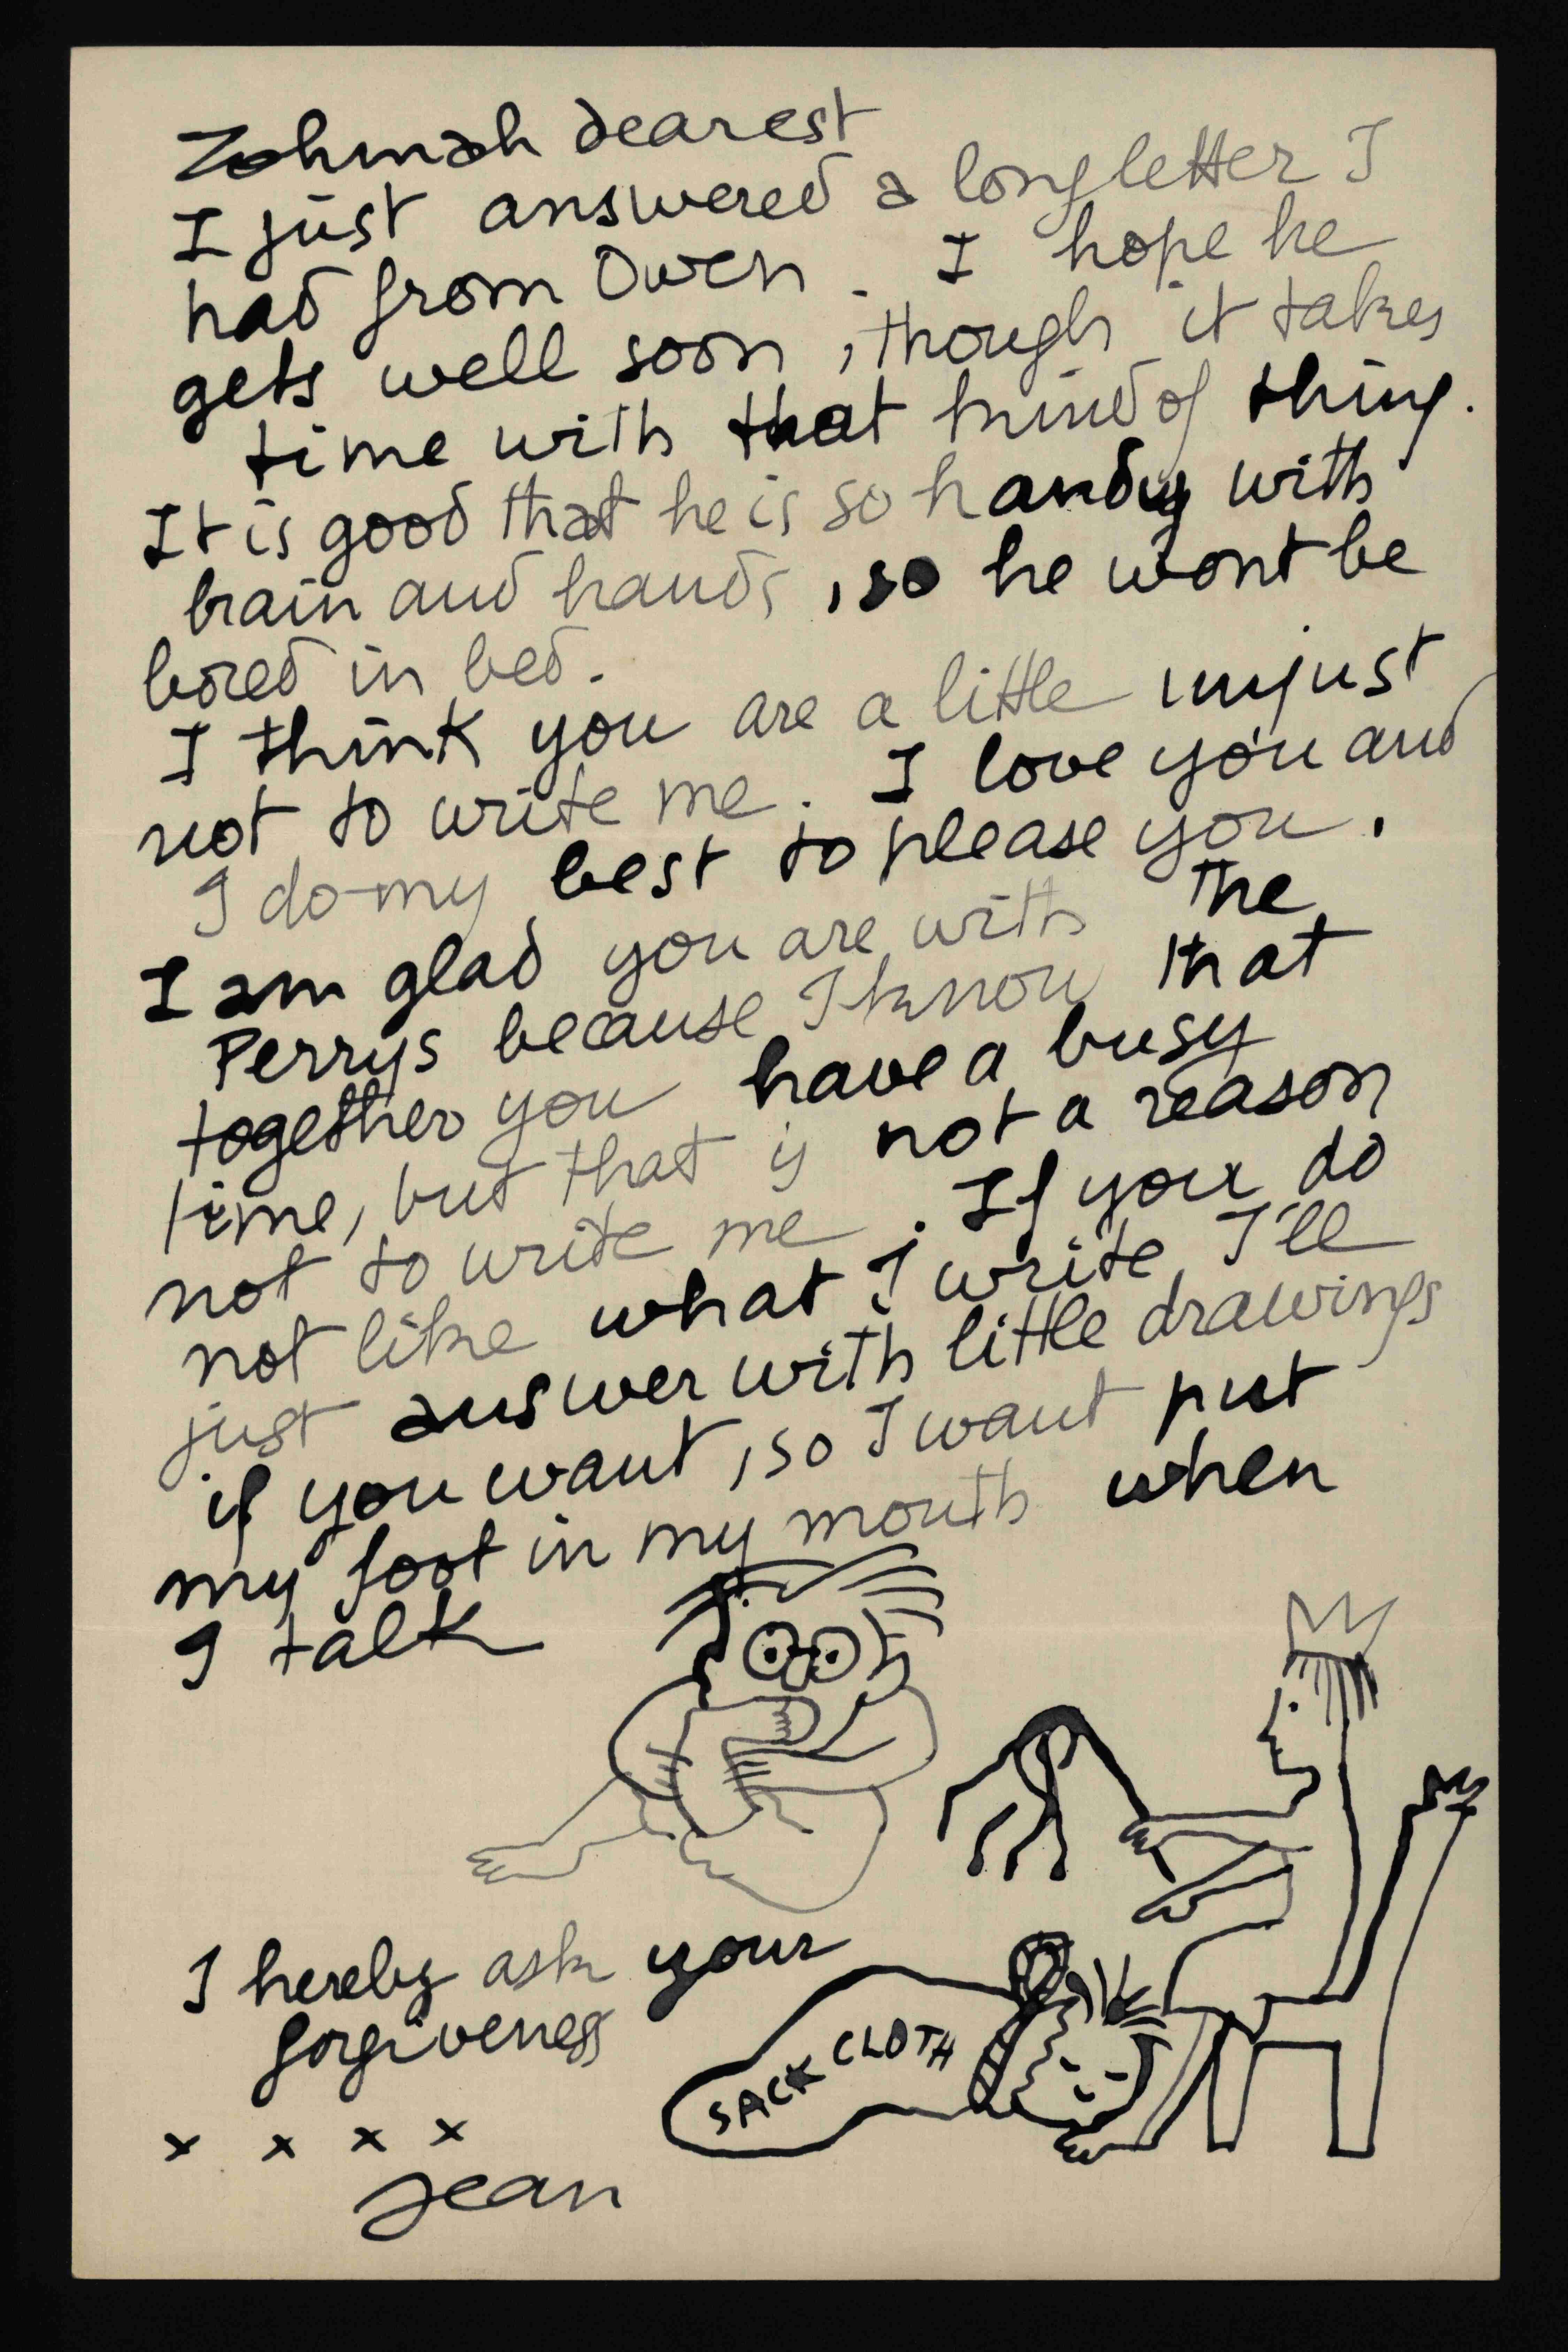 Zohmah dearest
I just answered a long letter I
had from Owen. I hope he
gets well soon, though it takes
time with that kind of thing.
It is good that he is so handy with
brain and hands, so he wont be
bored in bed.
I think you are a little unjust
not to write me. I love you and
I do my best to please you.
I am glad you are with the
Perrys because I know that
together you have a busy
time, but that is not a reason
not to write me. If you do
not like what I write, I'll
just answer with little drawings
if you want, so I want put
my foot in my mouth when
I talk
I hereby ask your
forgiveness
SACK CLOTH
x x x x
Jean